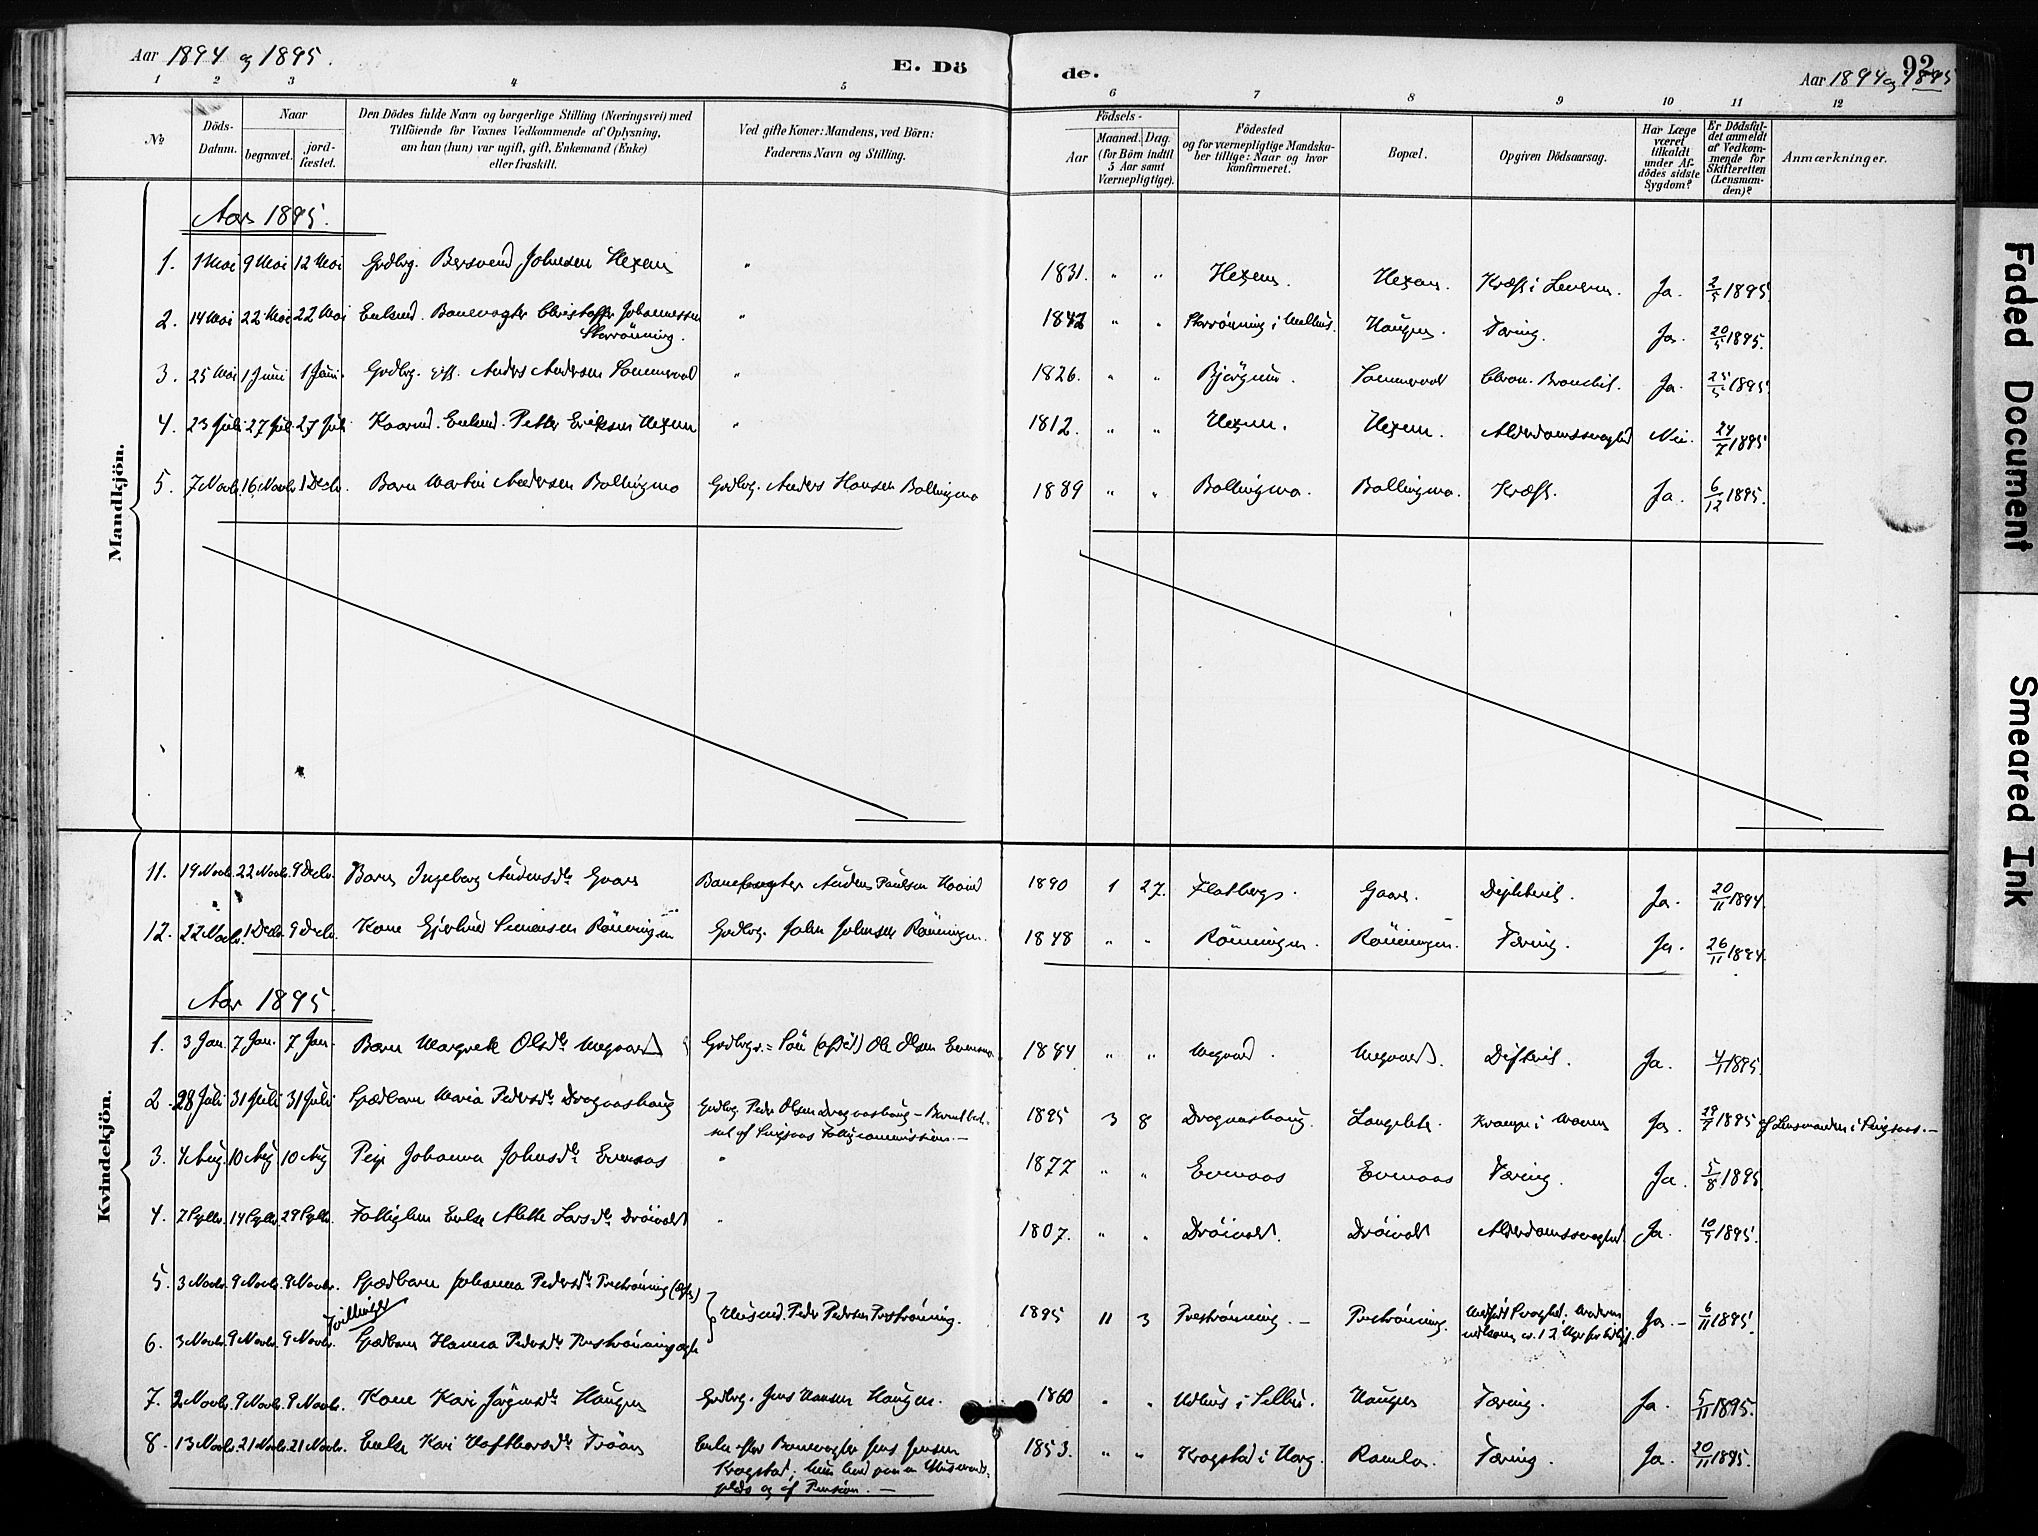 Aar 1894 og 1895.
E. Dö
de.
92
Aar 1894 og 1895
1 2 3 4 5
6 7 8 9 10 11 12
No
Döds-Datum.
Naar
begravet.
jord-fæstet.
Den Dödes fulde Navn og borgerlige Stilling (Næringsvei) med
Tilföiende for Voxnes Vedkommende af Oplysning,
om han (hun) var ugift, gift, Enkemand (Enke)
eller fraskilt.
Ved gifte Koner: Mandens, ved Börn:
Faderens Navn og Stilling.
Födsels-
Aar
Maaned. Dag.
(for Börn indtil
5 Aar samt
Værnepligtige).
Födested
og for værnepligtige Mandska-
ber tillige: Naar og hvor
konfirmeret.
Bopæl.
Opgiven Dödsaarsag.
Har Læge
været
tilkaldt
under Af-
dödes sidste
Sygdom?
Er Dödsfal-
det anmeldt
af Vedkom-
mende for
Skifteretten
(Lensman-
den)?
Anmærkninger.
Mandkjön.
Aar 1895.
1. 1 Mai 9 Mai 12 Mai Grdbrg. Bersvend Johnsen Hexem " 1831. " " Hexem. Hexem. Kræft i Leveren. Ja. 2/5 1895
2. 14 Mai 22 Mai 22 Mai Enkmd. Banevogter Christoffer Johannessen " 1842 " " i Melhus. Haugen Tæring. Ja. 20/5 1895.
3. 25 Mai 1 Juni 1 Juni Grdbrg. gift. Anders Andersen " 1826. " " Chron. Bronchit. Ja. 25/5 1895.
4. 23 Juli 27 Juli 27 Juli Kaarmd. Enkmd. Petter Eriksen Hexem " 1812. " " Hexem. Hexem. Alderdomssvaghed Nei. 24/7 1895
5. 7 Novb. 16 Novb. 1 Decb. Barn Martin Andersen Bollingmo Grdbrg. Anders Hansen Bollingmo 1889 " " Bollingmo. Bollingmo. Kræft. Ja. 6/12 1895.
Kvindekjön.
11. 19 Novb. 22 Novb. 9 Decb. Barn Ingeborg Andersdtr Gaare Banevogter Anders Paulsen 1890 1 27. Flatberg. Gaare. Difteherit. Ja. 20/11 1894.
12. 22 Novb. 1 Decb. 9 Decb. Kone Gjertrud Simonsen Rönningen Grdbrg. John Johnsen Rönningen. 1848 " " Rönningen. Rönningen. Tæring. Ja. 26/11 1894.
Aar 1895.
1. 3 Jan. 7 Jan. 7 Jan. Barn Margrete Olsdtr Megaard Grdbrgs. Sön Ole Olsen 1884 " " Megaard. Megaard. Difterit. Ja. 4/1 1895.
2. 28 Juli 31 Juli 31 Juli Spædbarn Maria Pedersdtr Dragaashaug Grdbrg. Peder Olsen Dragaashaug – Barnet
af Singsaas Fattigcommission. –
1895 3 8 Dragaashaug. Langlete. Krampe i Maven Ja. 29/7 1895 af Lensmanden i Singsaas. –
3. 4 Aug. 10 Aug 10 Aug Pige Johanna Johnsdtr Evenaas " 1877 " " Evenaas Evenaas Tæring. Ja. 5/8 1895.
4. 7 Sptbr. 14 Sptbr. 29 Sptbr. Fattiglem Enke Alette Larsdtr Dröivold " 1807. " " Dröivold. Dröivold Alderdomssvaghed. Ja. 10/9 1895.
5. 3 Novb. 9 Novb. 9 Novb. Spædbarn Johanna Pedersdtr Preströnning
Tvillinger
Husmd. Peder Pedersen Preströnning. 1895 11 3 Preströnning. – Preströnning. Medfödt Svaghed; Moderen
Ja. – 6/11 1895.
6. 3 Novb. 9 Novb. 9 Novb. Spædbarn Hanna Pedersdtr Preströnning
7. 2 Novb. 9 Novb. 9 Novb. Kone Kari Jörgensdtr Haugen Grdbrg. Jens Hansen Haugen. 1860 " " i Selbu. Haugen Tæring. Ja. 5/11 1895.
8. 13 Novb. 21 Novb. 21 Novb. Enke Kari Enke efter Banevogter Jens Jensen
Krogstad; hun
og af Pension. –
1853. " " Krogstad i Horg. Ramlo. Tæring. Ja. 20/11 1895.
Faded Document
Smeared Ink